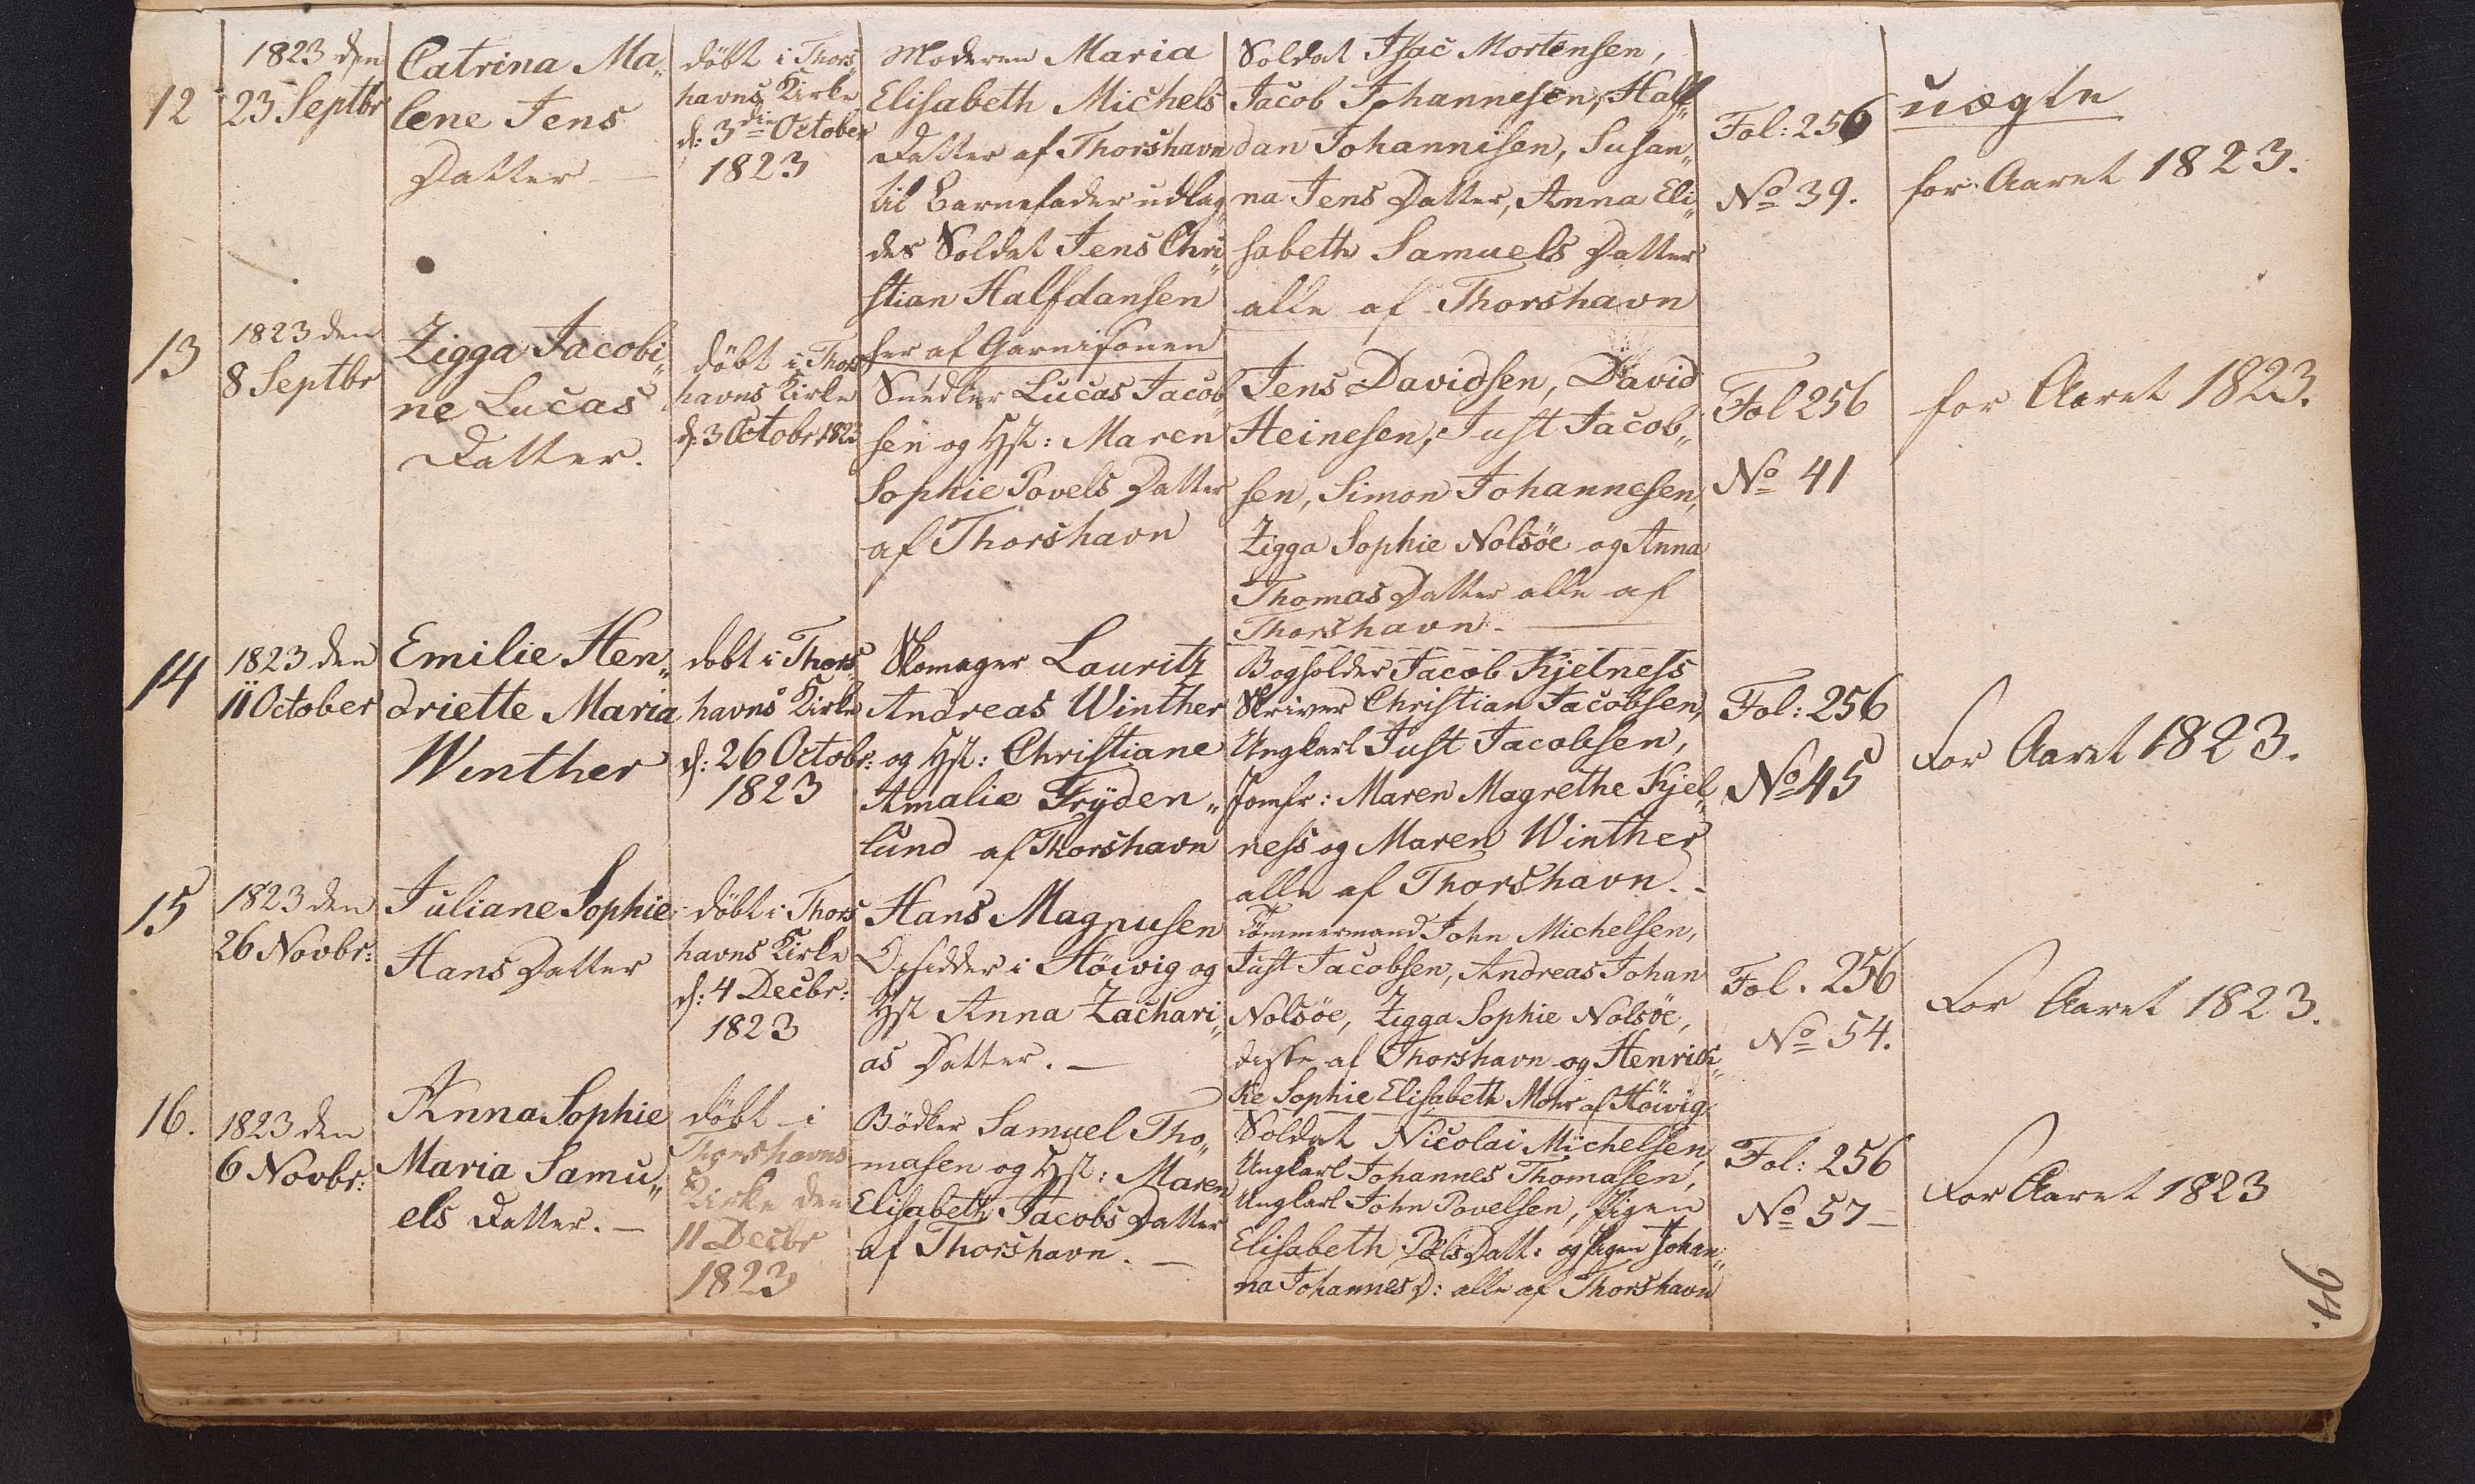 12
1823 den
23 Septbr
Catrina Ma„
lene Jens
Datter —
döbt i Thors„
havns Kirke
d: 3die October
1823
Moderen Maria
Elisabeth Michels
Datter af Thorshavn
til Barnefader udlag„
des Soldat Jens Chri„
stian Halfdansen
her af Garnisonen
Soldat Isac Mortensen,
Jacob Johannesen, Half„
dan Johannisen, Susan„
na Jens Datter, Anna Eli„
sabeth Samuels Datter
alle af Thorshavn
Fol: 256
No 39.
uægte
for Aaret 1823.
13
1823 den
8 Septbr
Zigga Jacobi„
ne Lucas
Datter.
döbt i Thors
havns Kirke
d: 3 Octobr 1823
Snedker Lucas Jacob„
sen og Hst: Maren
Sophie Povels Datter
af Thorshavn
Jens Davidsen, David
Heinesen, Just Jacob„
sen, Simon Johannesen,
Zigga Sophie Nolsöe og Anna
Thomas Datter alle af
Thorshavn. —
Fol 256
No 41
for Aaret 1823.
14
1823 den
11 October
Emilie Hen„
driette Maria
Winther
döbt i Thors„
havns Kirke
d: 26 Octobr:
1823
Skomager Lauritz
Andreas Winther
og Hst: Christiane
Amalie Frÿden„
lund af Thorshavn
Bogholder Jacob Kjelness
Skriver Christian Jacobsen,
Ungkarl Just Jacobsen,
Jomfr: Maren Magrethe Kjel„
ness og Maren Winther
alle af Thorshavn. -
Fol: 256
No 45
For Aaret 1823.
15
1823 den
26 Novbr:
Juliane Sophie
Hans Datter
döbt i Thors
havns Kirke
d: 4 Decbr:
1823
Hans Magnusen
Opsidder i Höivig og
Hst Anna Zachari„
as Datter. —
Tömmermand John Michelsen,
Just Jacobsen, Andreas Johan
Nolsöe, Zigga Sophie Nolsöe,
disse af Thorshavn og Henric„
ke Sophie Elisabeth Mohr af Höivig
Fol. 256
No 54.
For Aaret 1823.
16.
1823 den
6 Novbr:
Anna Sophie
Maria Samu„
els Datter. —
döbt i
Thorshavns
Kirke den
11 Decbr
1823
Bödker Samuel Tho„
masen og Hst: Maren
Elisabeth Jacobs Datter
af Thorshavn. —
Soldat Nicolai Michelsen,
Ungkarl Johannes Thomasen,
Ungkarl John Povelsen, Pigen
Elisabeth Pæls Datt: og Pigen Johan„
na Johannes D: alle af Thorshavn
Fol: 256
No 57 —
For Aaret 1823
94.